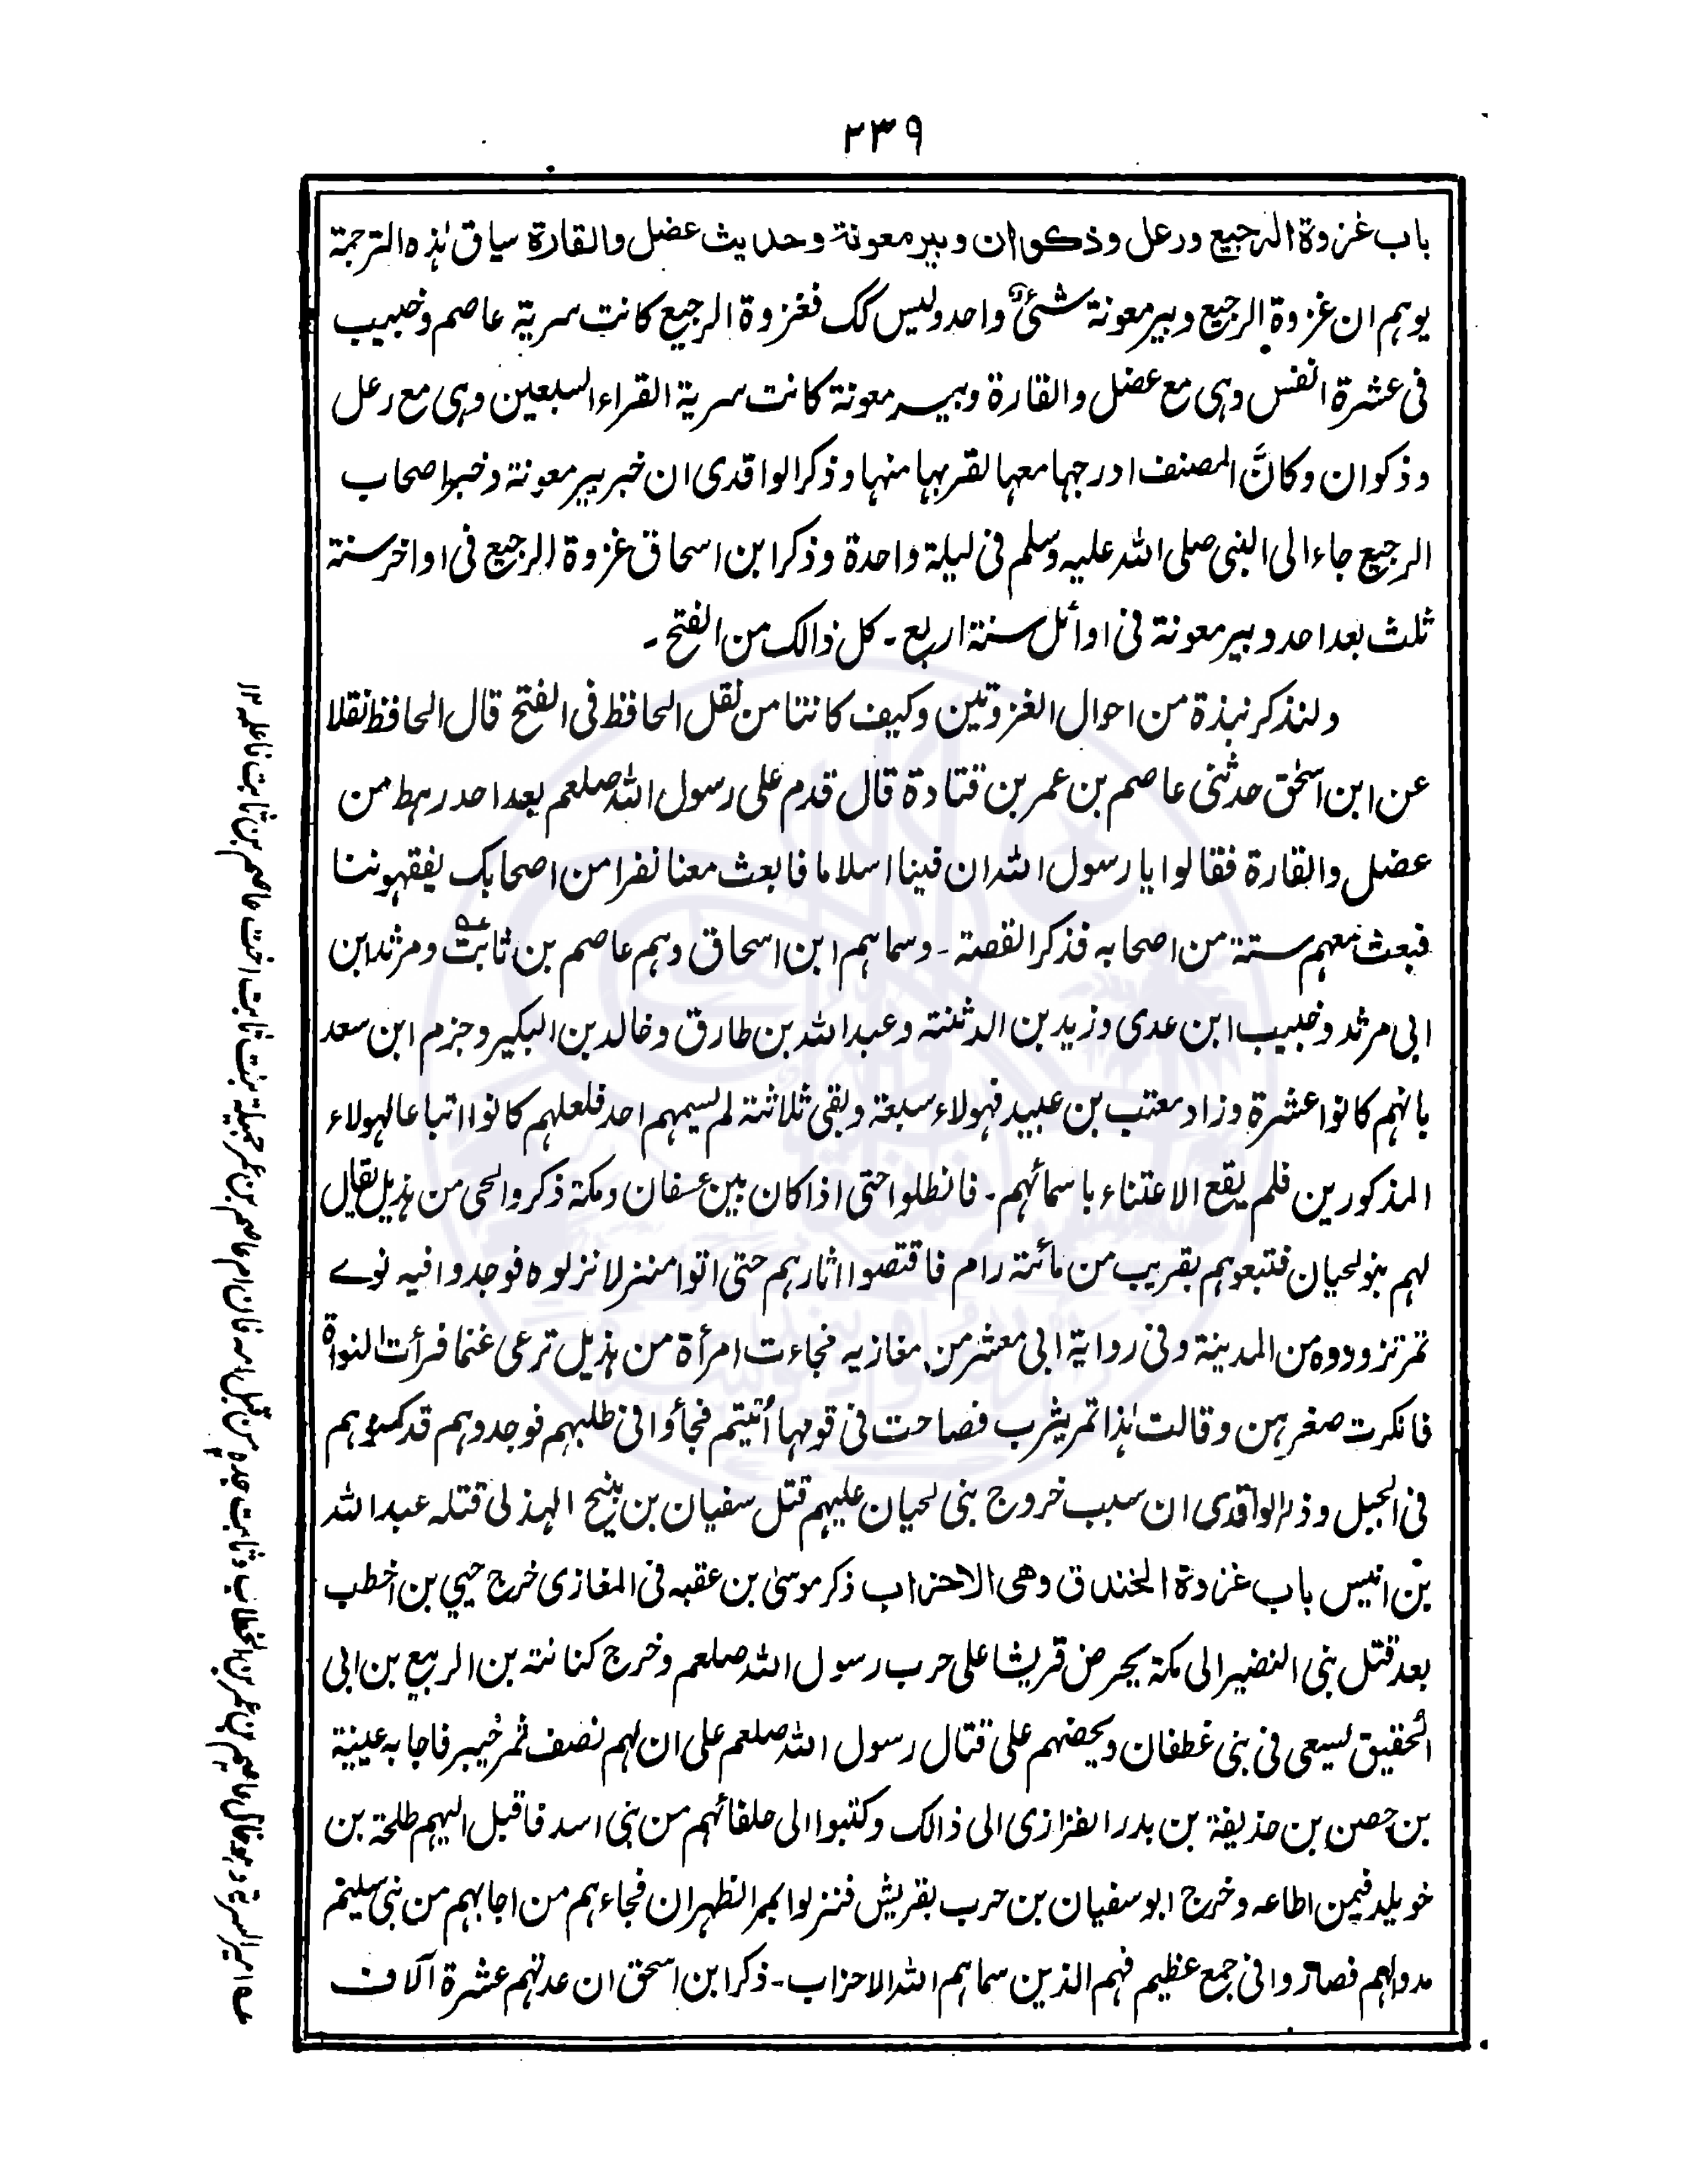 ۲۳۹
باب غزوة الرجيع ورعل وذكوان وبير معونة وحديث عضل والقارة سياق ہٰذہ الترجمة
يوہم ان غزوة الرجيع وبير معونة شئیٌ واحد وليس كك فغزوة الرجيع كانت سرية عاصم وخبيب
فى عشرة انفس وہى مع عضل والقارة وبير معونة كانت سرية القراء السبعين وہى مع رعل
وذكوان وكانَّ المصنف ادرجہا معہا لقربہا منہا وذكر الواقدى ان خبر بير معونة وخبر اصحاب
الرجيع جاء الى النبى صلى اللہ عليہ وسلم فى ليلة واحدة وذكر ابن اسحاق غزوة الرجيع فى اواخر سنة
ثلث بعد احد وبير معونة فى اوائل سنة اربع ۔ كل ذالك من الفتح ۔
ولنذكر نبذة من احوال الغزوتين وكيف كانتا من نقل الحافظ فى الفتح قال الحافظ نقلا
عن ابن اسحٰق حدثنى عاصم بن عمر بن قتادة قال قدم على رسول اللہ صلعم بعد احد رہط من
عضل والقارة فقالوا يا رسول اللہ ان فينا اسلاما فابعث معنا نفرا من اصحابك يفقہوننا
فبعث معہم ستة من اصحابہ فذكر القصة ۔ وسماہم ابن اسحاق وہم عاصم بن ثابت عہ ومرثد ابن
ابى مرثد وخبيب ابن عدى وزيد بن الدثنة وعبد اللہ بن طارق وخالد بن البكير وجزم ابن سعد
بانہم كانوا عشرة وزاد معتب بن عبيد فہولاء سبعة وبقى ثلاثة لم يسمہم احد فلعلہم كانوا اتباعا لہولاء
المذكورين فلم يقع الاعتناء باسمائہم ۔ فانطلوا حتى اذا كان بين عسفان ومكة ذكروا لحى من ہذيل يقال
لہم بنو لحيان فتبعوہم بقريب من مائة رام فاقتصوا اثارہم حتى اتوا منزلا نزلوہ فوجدوا فيہ نوے
تمر تزودوہ من المدينة وفى رواية ابى معشر من مغازيہ فجاءت امرأة من ہذيل ترعى غنما فرأت النواة
فانكرت صغرہن وقالت ہٰذا تمر يثرب فصاحت فى قومہا اُتيتم فجأوا فى طلبہم فوجدوہم قد كمنوا ہم
فى الجبل وذكر الواقدى ان سبب خروج بنى لحيان عليہم قتل سفيان بن نبيح الہذلى قتلہ عبد اللہ
بن انيس باب غزوة الخندق وهى الاحزاب ذكر موسىٰ بن عقبہ فى المغازى خرج حيي بن اخطب
بعد قتل بنى النضير الى مكة يحرض قريشا على حرب رسول اللہ صلعم وخرج كنانة بن الربيع بن ابى
الحقيق يسعى فى بنى غطفان ويحضہم على قتال رسول اللہ صلعم على ان لہم نصف ثمر خيبر فاجابہ عيينة
بن حصن بن حذيفة بن بدر الفزازى الى ذالك وكتبوا الى حلفائہم من بنى اسد فاقبل اليہم طلحة بن
خويلد فيمن اطاعہ وخرج ابو سفيان بن حرب بقريش فنزلوا بمر الظہران فجاءہم من اجابہم من بنى سليم
مدوا لہم فصاروا فى جمع عظيم فہم الذين سماہم اللہ الاحزاب ۔ ذكر ابن اسحٰق ان عدتہم عشرة آلاف